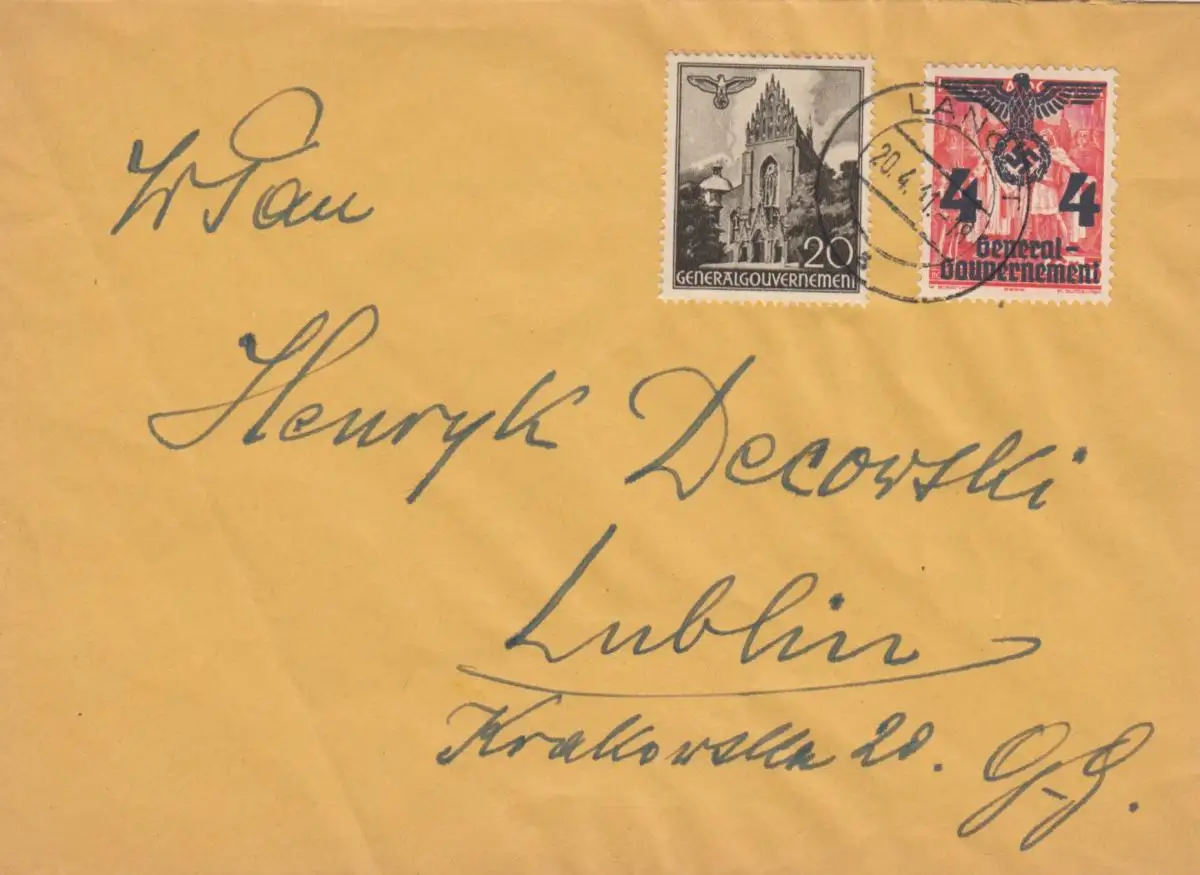 20
GENERALGOUVERNEMENT
4 4
General-
Gouvernement
20.4.41.-18
W Pan
Henryk Decowski
Lublin
Krakowska 20. G.G.